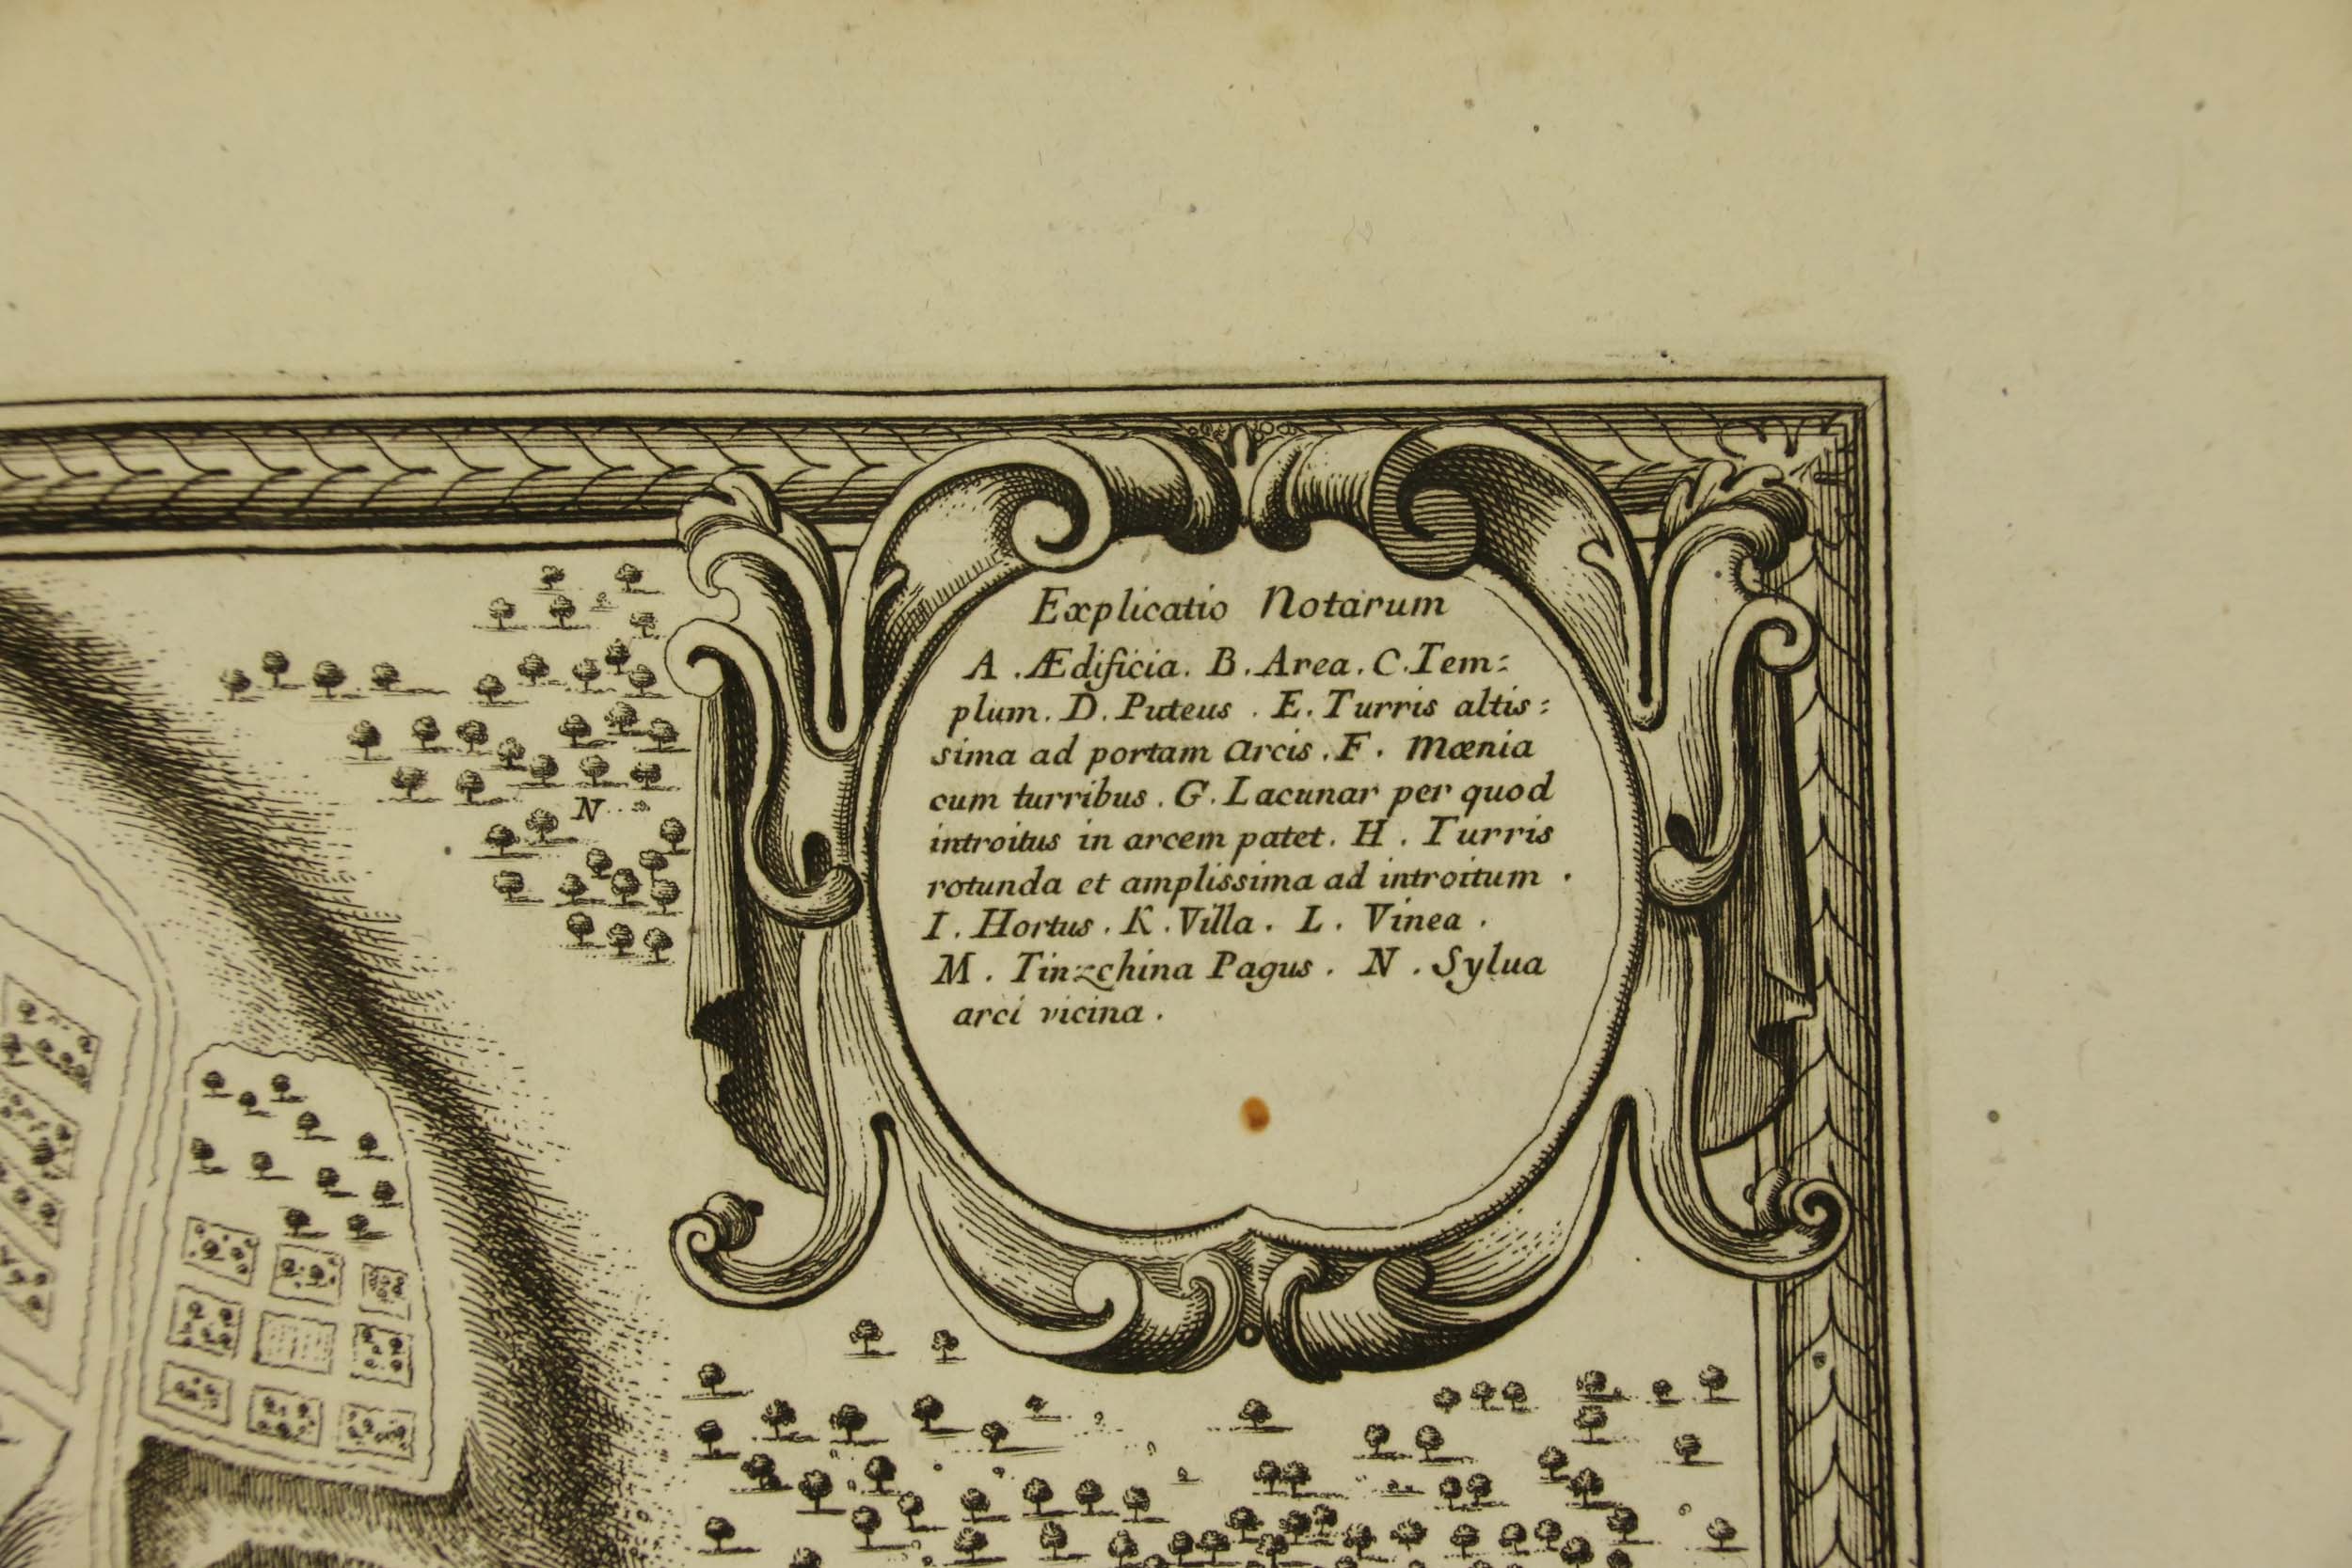 Explicatio Notarum
A . Ædificia . B . Area . C . Tem:
plum . D . Puteus . E . Turris altis:
sima ad portam arcis . F . Mœnia
cum turribus . G . Lacunar per quod
introitus in arcem patet . H . Turris
rotunda et amplissima ad introitum .
I . Hortus . K . Villa . L . Vinea .
M . Tinzchina Pagus . N . Sylua
arci vicina .
N